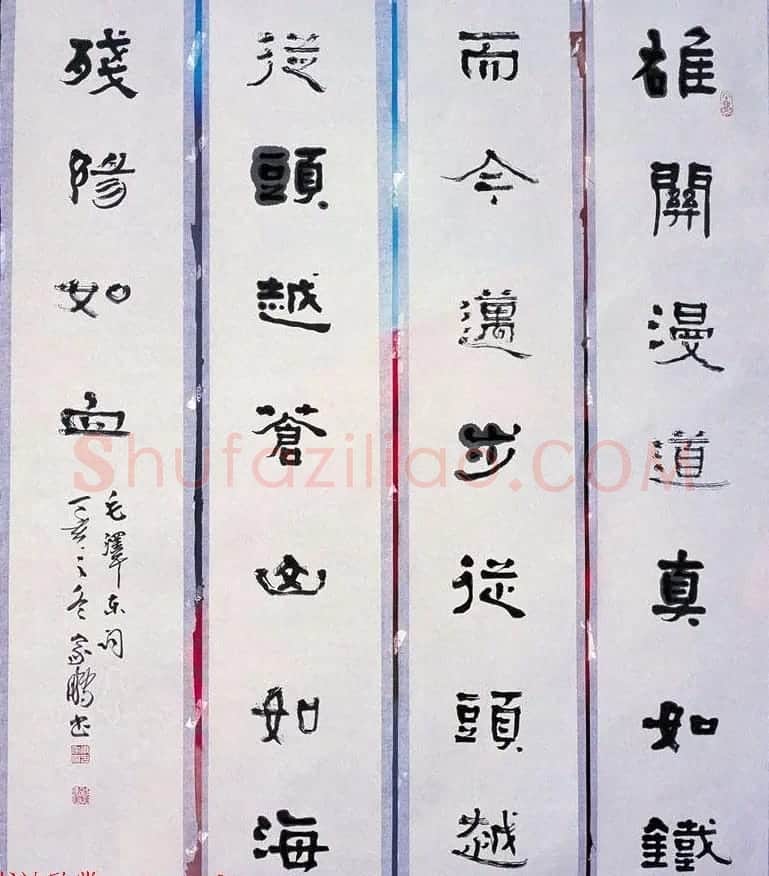 雄關漫道真如鐵
而今邁步從頭越
從頭越蒼山如海
殘陽如血
毛澤东词
丁亥之冬鵬书
Shufaziliao.COM